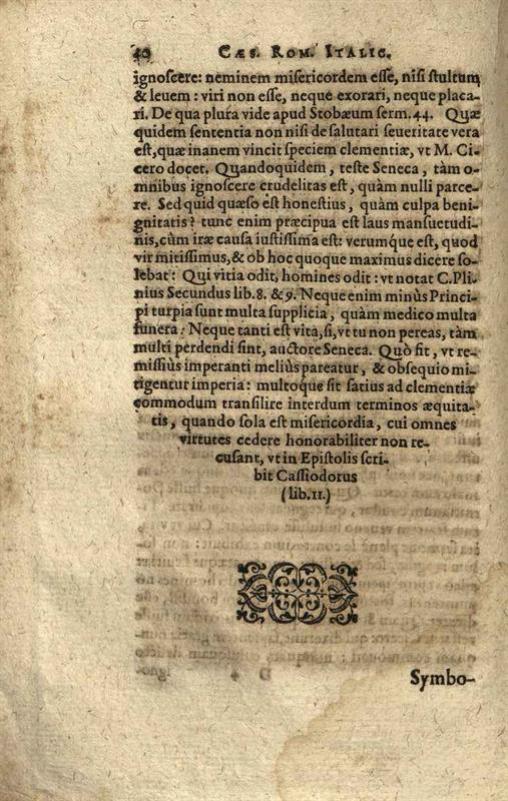 40 CÆS. ROM. ITALIC.
ignoſcere: neminem miſericordem eſſe, niſi ſtultum
& leuem : viri non eſſe, neque exorari, neque placa-
ri. De qua plura vide apud Stobæum ſerm. 44. Quæ
quidem ſententia non niſi de ſalutari ſeueritate vera
eſt, quæ inanem vincit ſpeciem clementiæ, vt M. Ci-
cero docet. Quandoquidem, teſte Seneca, tàm o-
mnibus ignoſcere crudelitas eſt, quàm nulli parce-
re. Sed quid quæſo eſt honeſtius, quàm culpa beni-
gnitatis? tunc enim præcipua eſt laus manſuetudi-
nis, cùm iræ cauſa iuſtiſſima eſt: verumque eſt, quod
vir mitiſſimus, & ob hoc quoque maximus dicere ſo-
lebat: Qui vitia odit, homines odit : vt notat C. Pli-
nius Secundus lib. 8. & 9. Neque enim minùs Princi-
pi turpia ſunt multa ſupplicia, quàm medico multa
funera: Neque tanti eſt vita, ſi, vt tu non pereas, tàm
multi perdendi ſint, auctore Seneca. Quò fit, vt re-
miſſius imperanti meliùs pareatur, & obſequio mi-
tigentur imperia: multoque ſit ſatius ad clementiæ
commodum tranſilire interdum terminos æquita-
tis, quando ſola eſt miſericordia, cui omnes
virtutes cedere honorabiliter non re-
cuſant, vt in Epiſtolis ſcri-
bit Caſſiodorus
(lib. 11.)
Symbo-